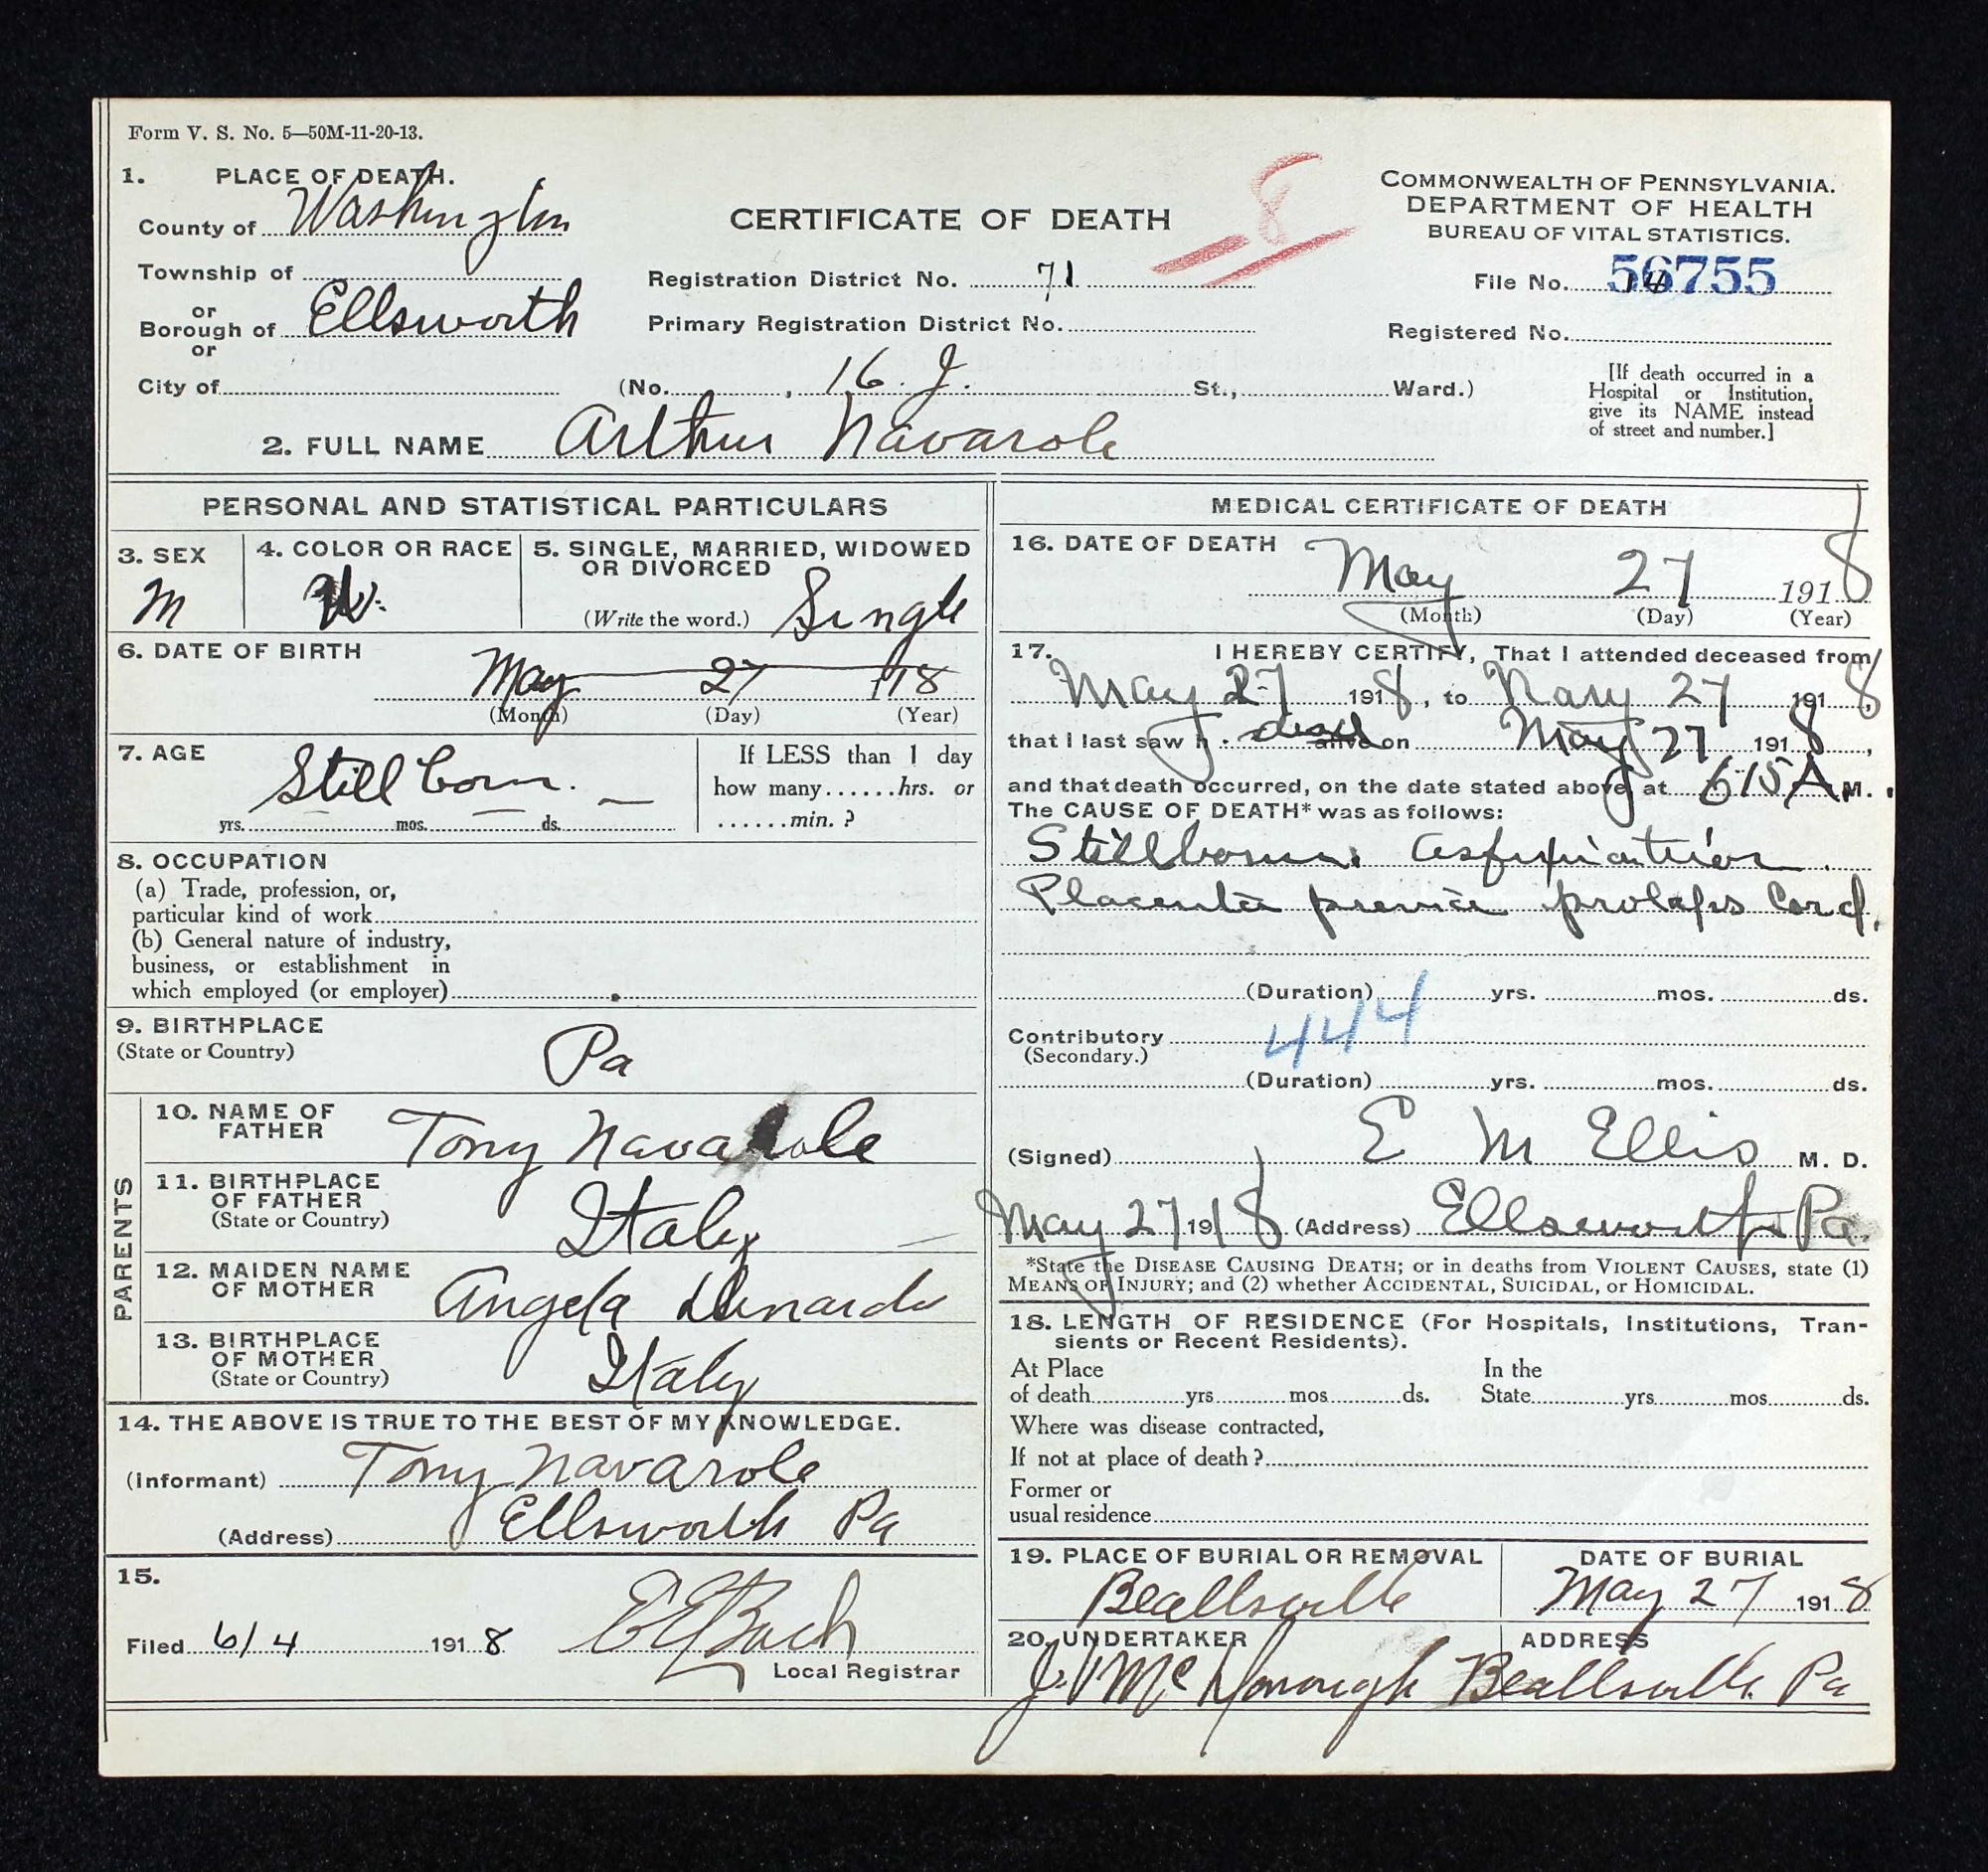 Form V. S. No. 5—50M-11-20-13.
1. PLACE OF DEATH.
County of Washington
Township of
or
Borough of Ellsworth
or
City of
CERTIFICATE OF DEATH
8
Registration District No. 71
Primary Registration District No.
(No. , 16. J. St., Ward.)
COMMONWEALTH OF PENNSYLVANIA.
DEPARTMENT OF HEALTH
BUREAU OF VITAL STATISTICS.
File No. 56755
Registered No.
[If death occurred in a
Hospital or Institution,
give its NAME instead
of street and number.]
2. FULL NAME Arthur Navarole
PERSONAL AND STATISTICAL PARTICULARS
3. SEX
M
4. COLOR OR RACE
W.
5. SINGLE, MARRIED, WIDOWED
OR DIVORCED
(Write the word.) Single
6. DATE OF BIRTH
May 27 1918
(Month) (Day) (Year)
7. AGE
Still born.
yrs. mos. ds.
If LESS than 1 day
how many......hrs. or
......min. ?
8. OCCUPATION
(a) Trade, profession, or,
particular kind of work
(b) General nature of industry,
business, or establishment in
which employed (or employer)
9. BIRTHPLACE
(State or Country)
Pa
PARENTS
10. NAME OF
FATHER
Tony Navarole
11. BIRTHPLACE
OF FATHER
(State or Country)
Italy
12. MAIDEN NAME
OF MOTHER
Angela
13. BIRTHPLACE
OF MOTHER
(State or Country)
Italy
14. THE ABOVE IS TRUE TO THE BEST OF MY KNOWLEDGE.
(Informant) Tony Navarole
(Address) Ellsworth Pa
15.
Filed 6/4 1918
Local Registrar
MEDICAL CERTIFICATE OF DEATH
16. DATE OF DEATH
May 27 1918
(Month) (Day) (Year)
17. I HEREBY CERTIFY, That I attended deceased from
May 27 1918, to May 27 1918,
that I last saw h dead alive on May 27 1918,
and that death occurred, on the date stated above, at 615 A M.
The CAUSE OF DEATH* was as follows:
Stillborn. asfixiation.
Placenta previa prolaps Cord.
(Duration) yrs. mos. ds.
Contributory 444
(Secondary.)
(Duration) yrs. mos. ds.
(Signed) E M Ellis M. D.
May 27 1918 (Address) Ellsworth Pa.
*State the DISEASE CAUSING DEATH; or in deaths from VIOLENT CAUSES, state (1)
MEANS OF INJURY; and (2) whether ACCIDENTAL, SUICIDAL, or HOMICIDAL.
18. LENGTH OF RESIDENCE (For Hospitals, Institutions, Tran-
sients or Recent Residents).
At Place In the
of death yrs mos ds. State yrs mos ds.
Where was disease contracted,
If not at place of death ?
Former or
usual residence
19. PLACE OF BURIAL OR REMOVAL
Beallsville
DATE OF BURIAL
May 27 1918
20. UNDERTAKER
J. V McDonough
ADDRESS
Beallsville Pa